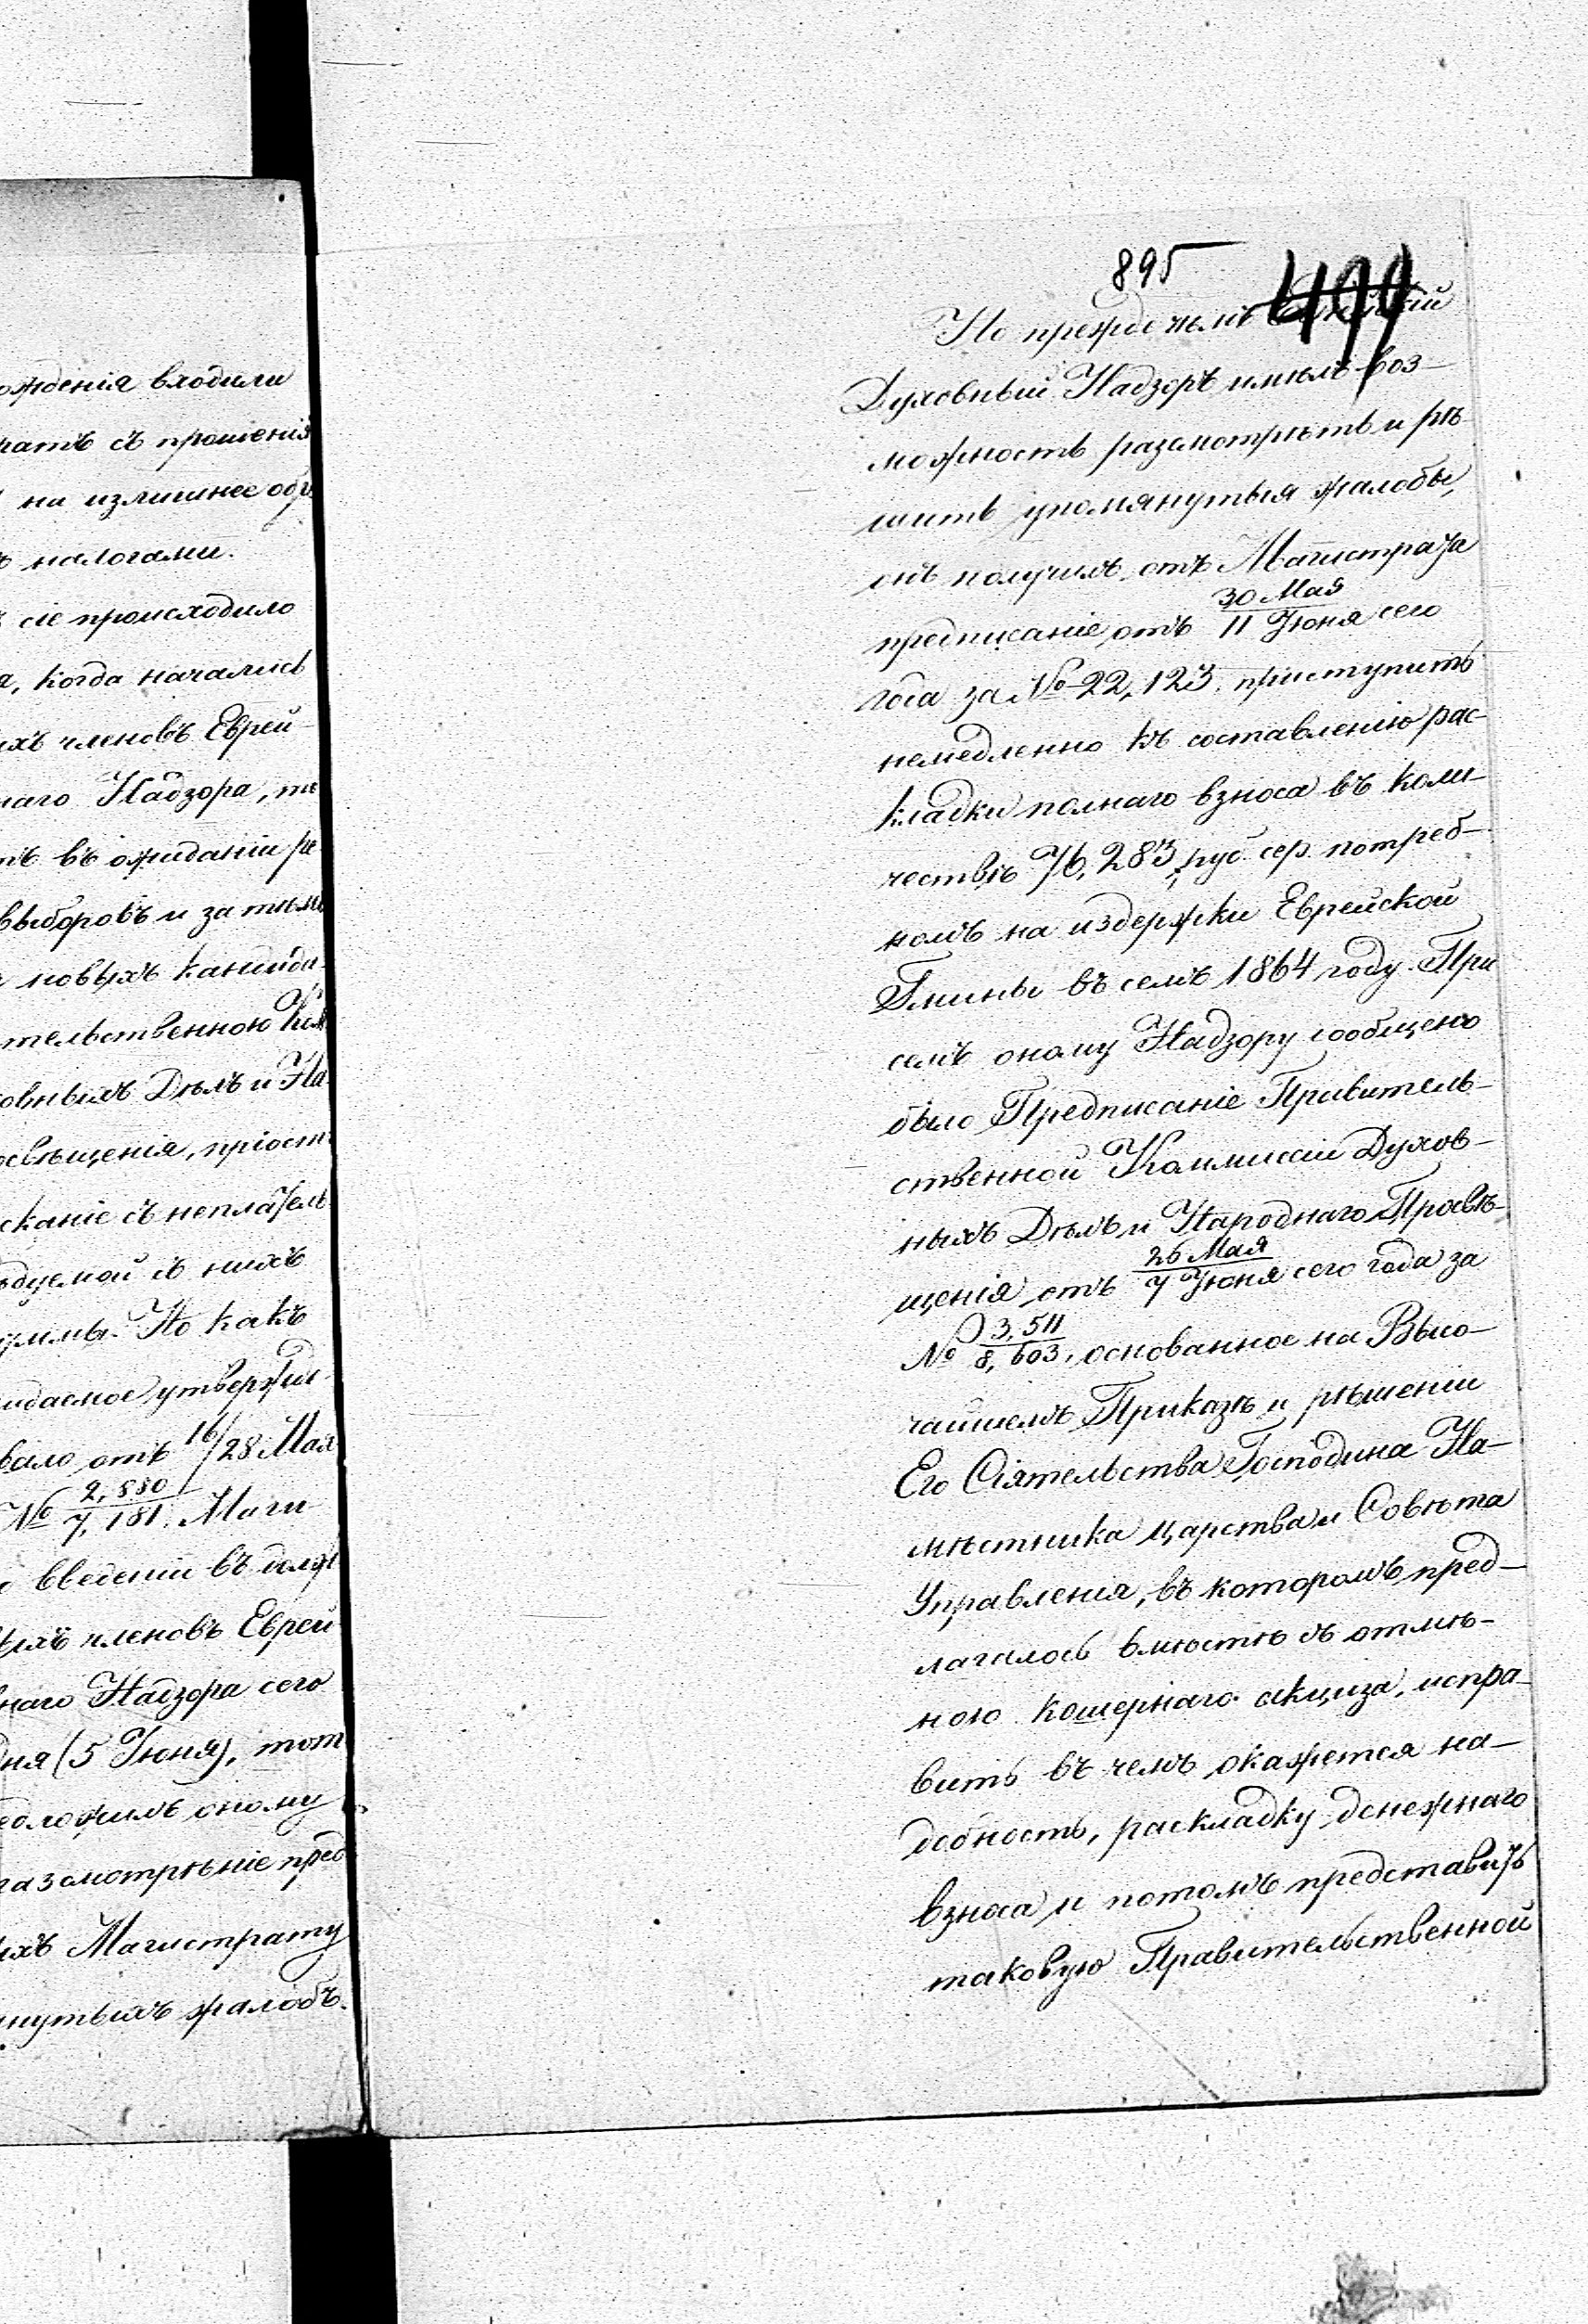 ождения входили
ратъ съ прошенія
на излишнее обр
налогами.
сіе происходило
а, когда начались
ихъ членовъ Еврей-
наго Надзора, то
въ ожиданіи ре
выборовъ и затѣмъ
новыхъ кандида-
тельственною Ком
овныхъ Дѣлъ и На-
освѣщенія, пріост
сканіе съ неплатель
ѣдуемой съ нихъ
уммы. Но какъ
идаемое утвержде-
вало отъ 16/28 Мая
№ 2,880/7,181, Маги-
о введеніи въ долж
ыхъ членовъ Еврей
внаго Надзора сего
дня (5 Іюня), тот
едложилъ оному
разсмотрѣніе пред
ихъ Магистрату
янутыхъ жалобъ.
895
499
Но прежде чѣмъ
Духовный Надзоръ имѣлъ воз-
можность разсмотрѣть и рѣ-
шить упомянутыя жалобы,
онъ получилъ отъ Магистрата
предписаніе отъ 30 Мая/11 Іюня сего
года за № 22,123, приступить
немедленно къ составленію рас-
кладки полнаго взноса въ коли-
чествѣ 76,283 руб. сер. потреб-
номъ на издержки Еврейской
Гмины въ семъ 1864 году. При
семъ оному Надзору сообщено
было Предписаніе Правитель-
ственной Коммиссіи Духов-
ныхъ Дѣлъ и Народнаго Просвѣ-
щенія отъ 26 Мая/7 Іюня сего года за
№ 3,511/8,603, основанное на Высо-
чайшемъ Приказѣ и рѣшеніи
Его Сіятельства Господина На-
мѣстника Царства и Совѣта
Управленія, въ которомъ пред-
лагалось вмѣстѣ съ отмѣ-
ною кошернаго акциза, испра-
вить въ чемъ окажется на-
добность, раскладку денежнаго
взноса и потомъ представить
таковую Правительственной